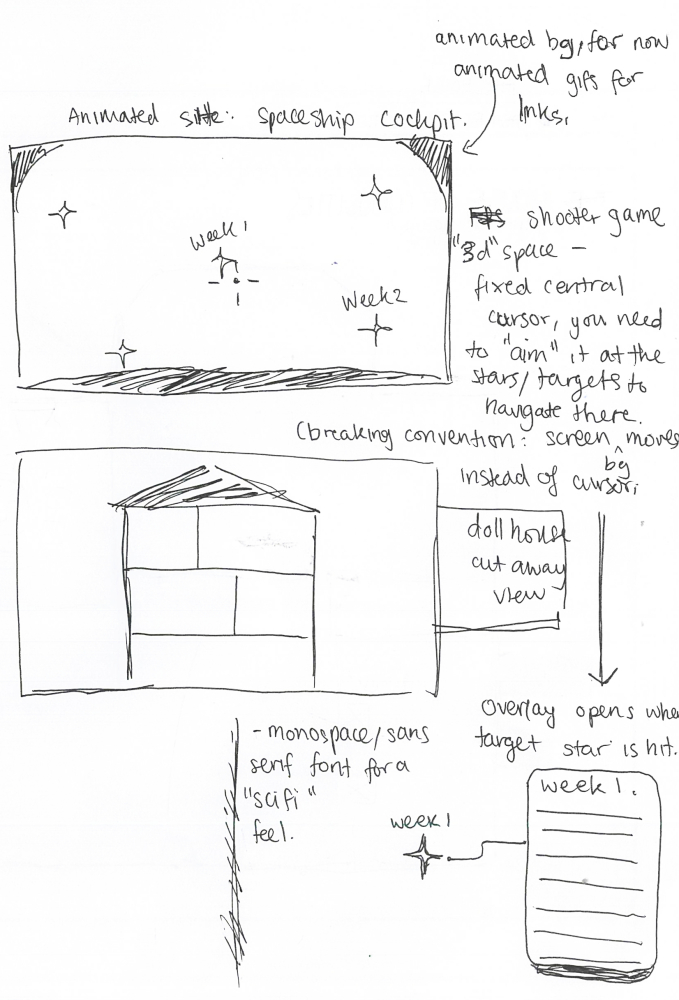 animated bg, for now
animated gifs for
links.
Animated site: spaceship cockpit.
week 1
week2
shooter game
"3d" space –
fixed central
cursor, you need
to "aim" it at the
stars/targets to
navigate there.
(breaking convention: screen moves
bg
instead of cursor;
doll house
cut away
view
Overlay opens whe
target star is hit.
- monospace/sans
serif font for a
"scifi"
feel.
week 1
week 1.